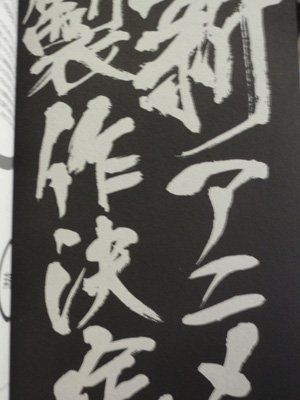 新アニメ
製作決定